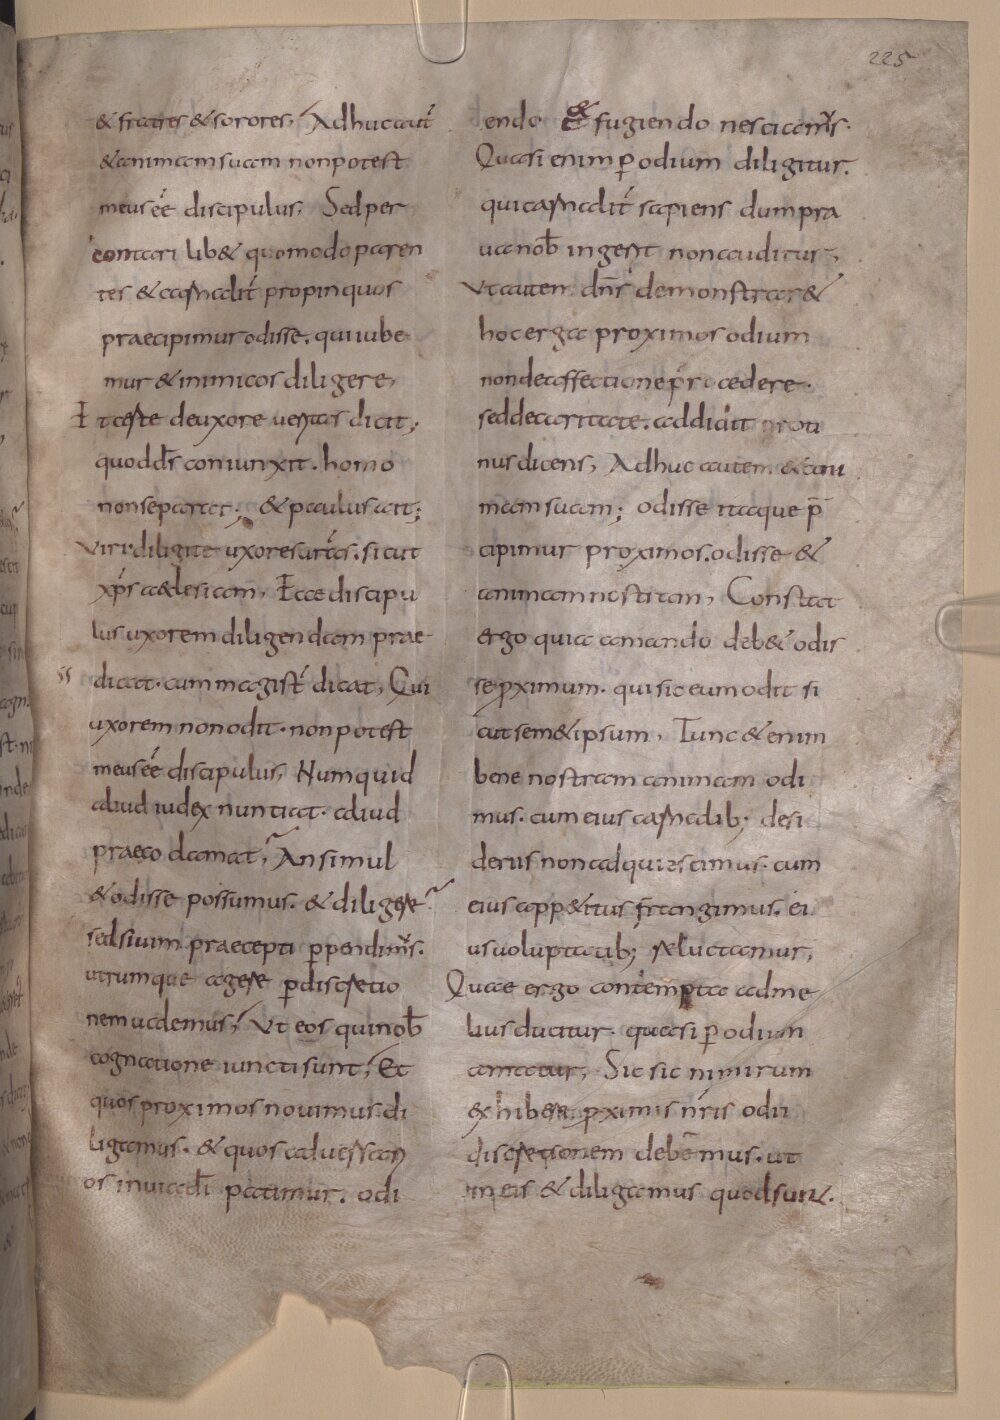 225
& fratres & sorores, Adhuc aut̄
& animam suam non potest
meus eē discipulus, Sed per
contari lib& quomodo paren
tes & carnalit̄ propinquos
praecipimur odisse. qui iube
mur & inimicos diligere,
Et certe de uxore ueritas dicit;
quod d̄s coniunxit. homo
non separet; & paulus ait;
Viri diligite uxores ur̄as. sicut
xp̄s aeclesiam, Ecce discipu
lus uxorem diligendam prae
dicat. cum magist̄ dicat, Qui
uxorem non odit. non potest
meus eē discipulus, Numquid
aliud iudex nuntiat. aliud
praeco clamat, An simul
& odisse possumus. & diligere
sed si uim praecepti p̄pendim̄s.
utrumque agere p̄ discretio
nem ualemus, Ut eos qui nob̄
cognatione iuncti sunt, Et
quos proximos nouimus. di
ligamus. & quos aduersari
os in uia dī patimur. odi
endo & fugiendo nesciam̄s.
Quasi enim p̄ odium diligitur.
qui carnalit̄ sapiens dum pra
ua nob̄ ingerit non auditur,
Ut autem dn̄s demonstrar&
hoc erga proximos odium
non de affectione procedere.
sed de caritate. addidit proti
nus dicens, Adhuc autem & ani
mam suam; odisse itaque p̄
cipimur proximos. odisse &
animam nostram, Constat
ergo quia amando deb& odis
se p̄ximum. qui sic eum odit si
cut sem&ipsum, Tunc & enim
bene nostram animam odi
mus. cum eius carnalib; desi
deriis non adquiescimus. cum
eius app&itus frangimus. ei
us uoluptatib; reluctamur,
Quae ergo contempta ad me
lius ducitur. quasi p̄ odium
amatur, Sic sic nimirum
exhibere p̄ximis nr̄is odii
discretionem debemus. ut
in eis & diligamus quod sunt.